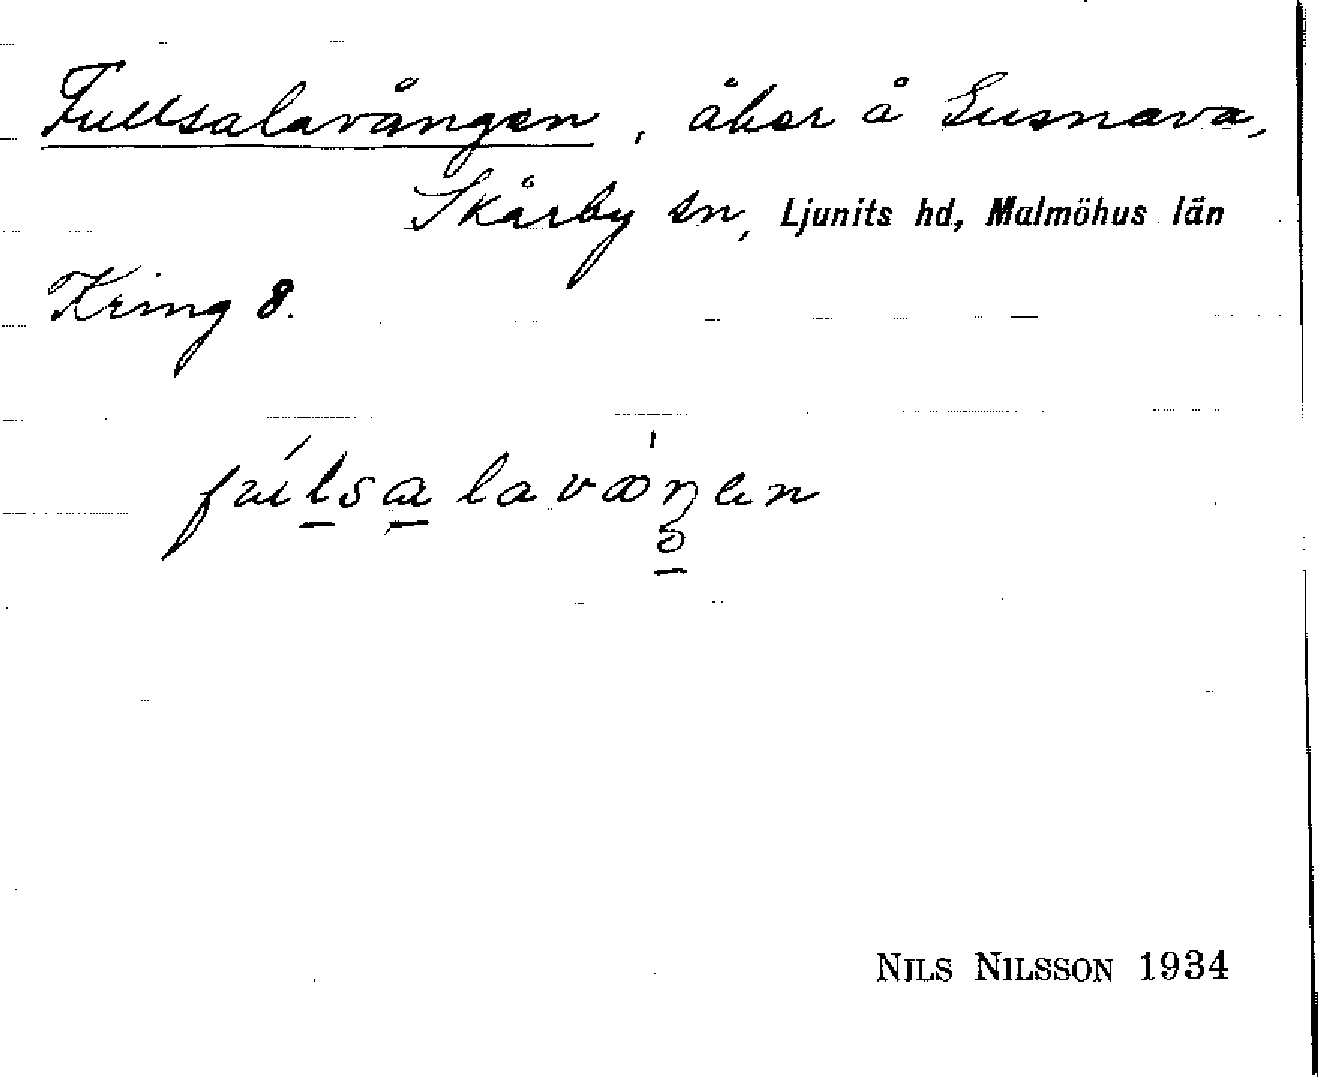 Fullsalavången, åker å Susnava,
Skårby sn, Ljunits hd, Malmöhus län
Kring 8.
NILS NILSSON 1934